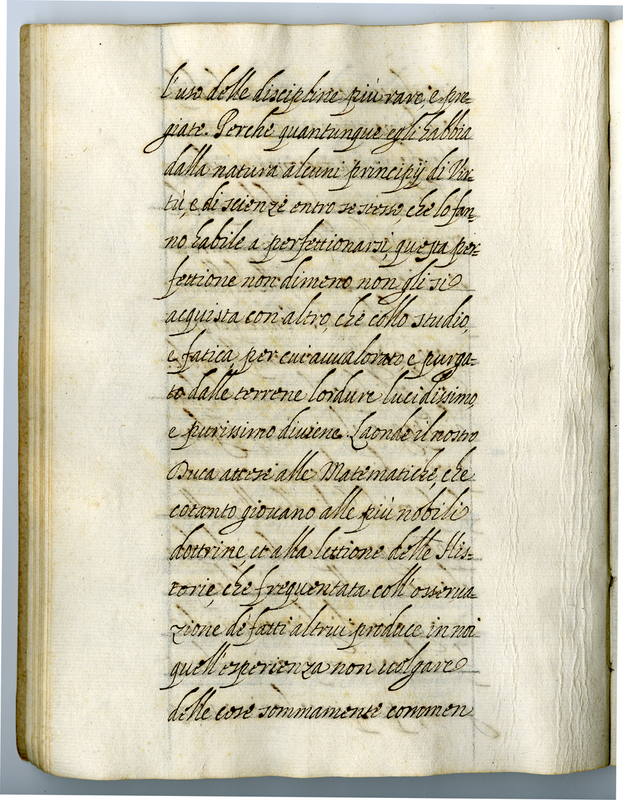 l'uso delle discipline più rare, e pre=
giate. Perche quantunque egli habbia
dalla natura alcuni principij di Vir=
tù, e di scienze entro se stesso che lo fan=
no habile a perfettionarsi, questa per=
fettione non dimeno non gli si
acquista con altro, che collo studio,
e fatica per cui avvalorato e purga=
to dalle terrene lordure lucidissimo,
e purissimo diviene. Laonde il nostro
Duca attese alle Matematiche, che
cotanto giovano alle più nobili
dottrine, et alla lettione delle His=
torie, che frequentata coll'osserva=
zione de fatti altrui produce in noi
quell'esperienza non volgare
delle cose sommamente conmen